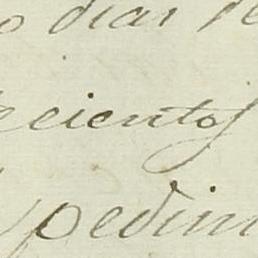 o dias de
ecientos
pedim